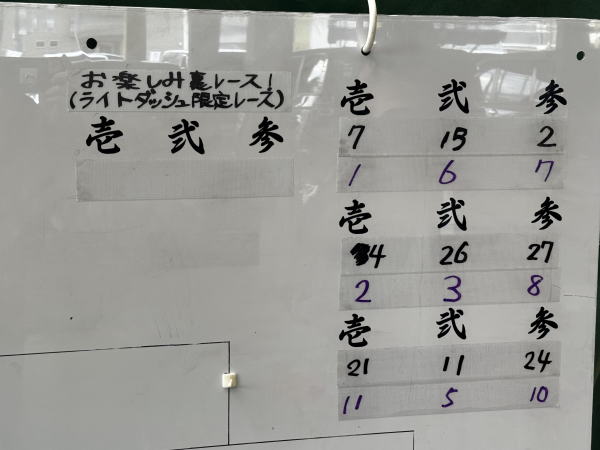 お楽しみ裏レース!
(ライトダッシュ限定レース)
壱 弐 参
壱 弐 参
7 15 2
1 6 7
壱 弐 参
4 26 27
2 3 8
壱 弐 参
21 11 24
11 5 10